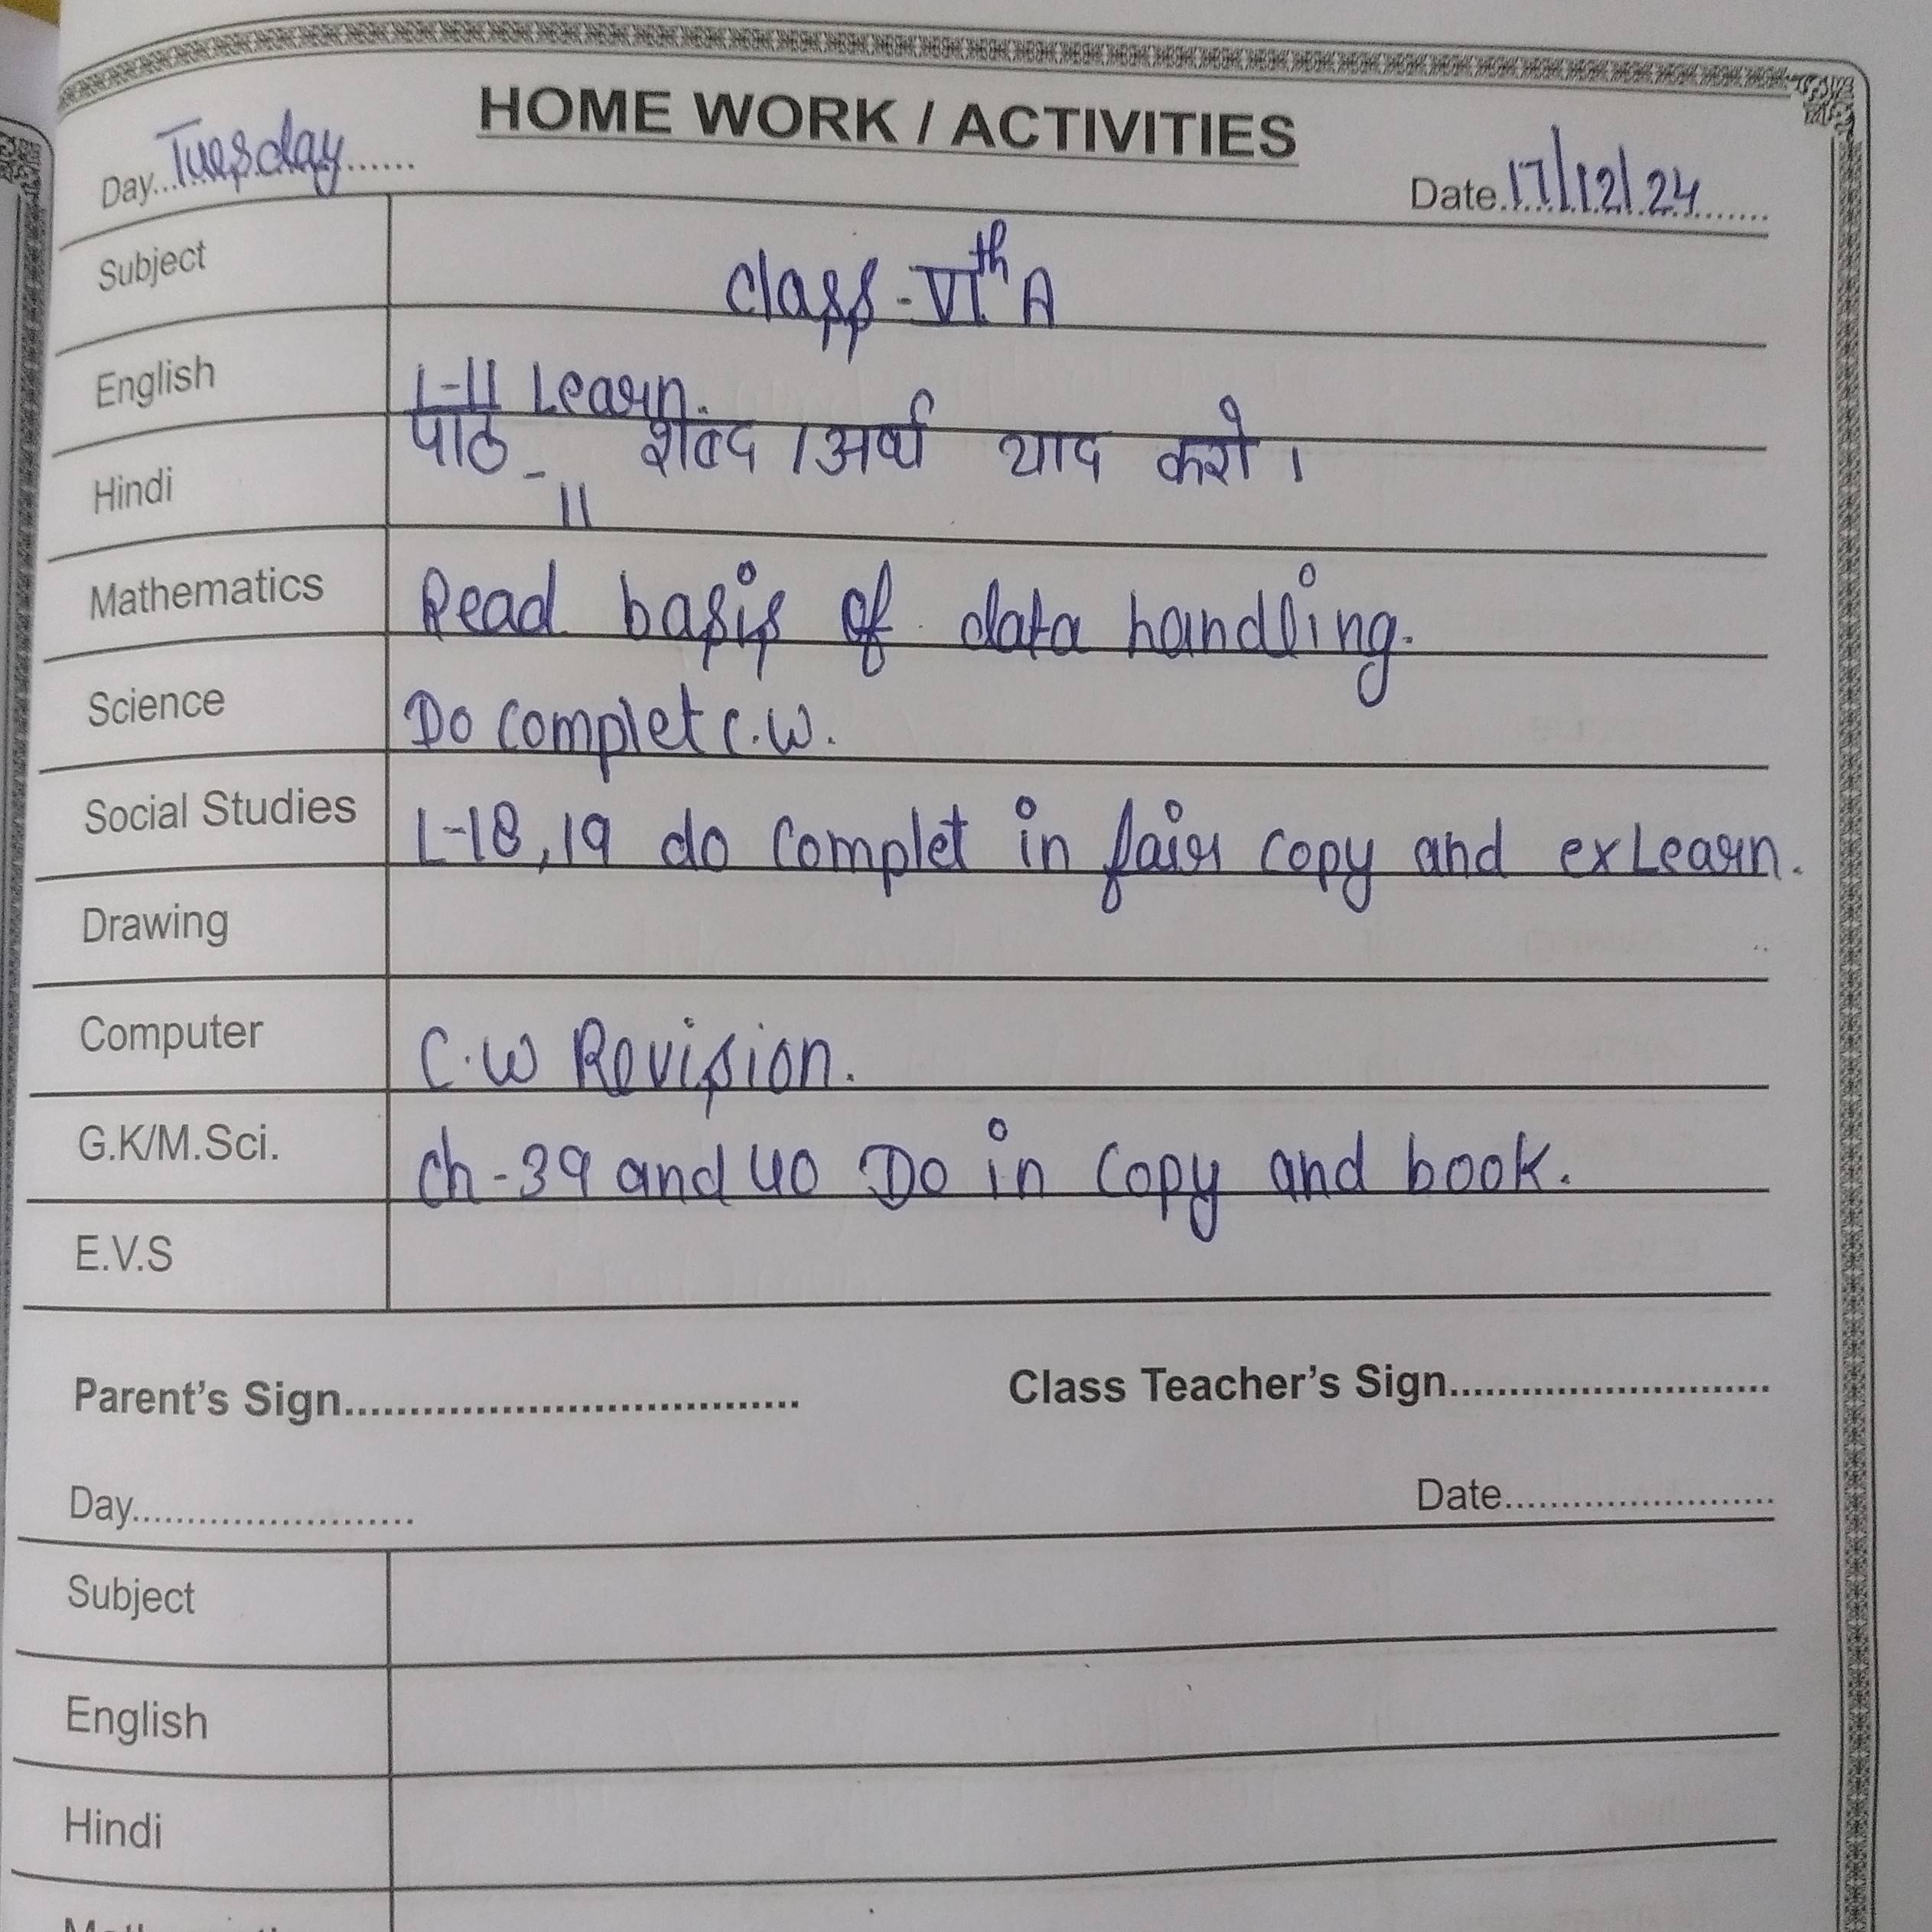 HOME WORK / ACTIVITIES
Day...Tuesday...... Date.17/12/24.......
Subject Class - VIth A
English L-11 Learn.
Hindi पाठ - 11 शब्द / अर्थ याद करो ।
Mathematics Read basis of data handling.
Science Do complet c.w.
Social Studies L-18,19 do complet in fair copy and ex Learn.
Drawing
Computer C.W Revision.
G.K/M.Sci. Ch-39 and 40 Do in copy and book.
E.V.S
Parent's Sign.................................... Class Teacher's Sign...........................
Day........................ Date.........................
Subject
English
Hindi